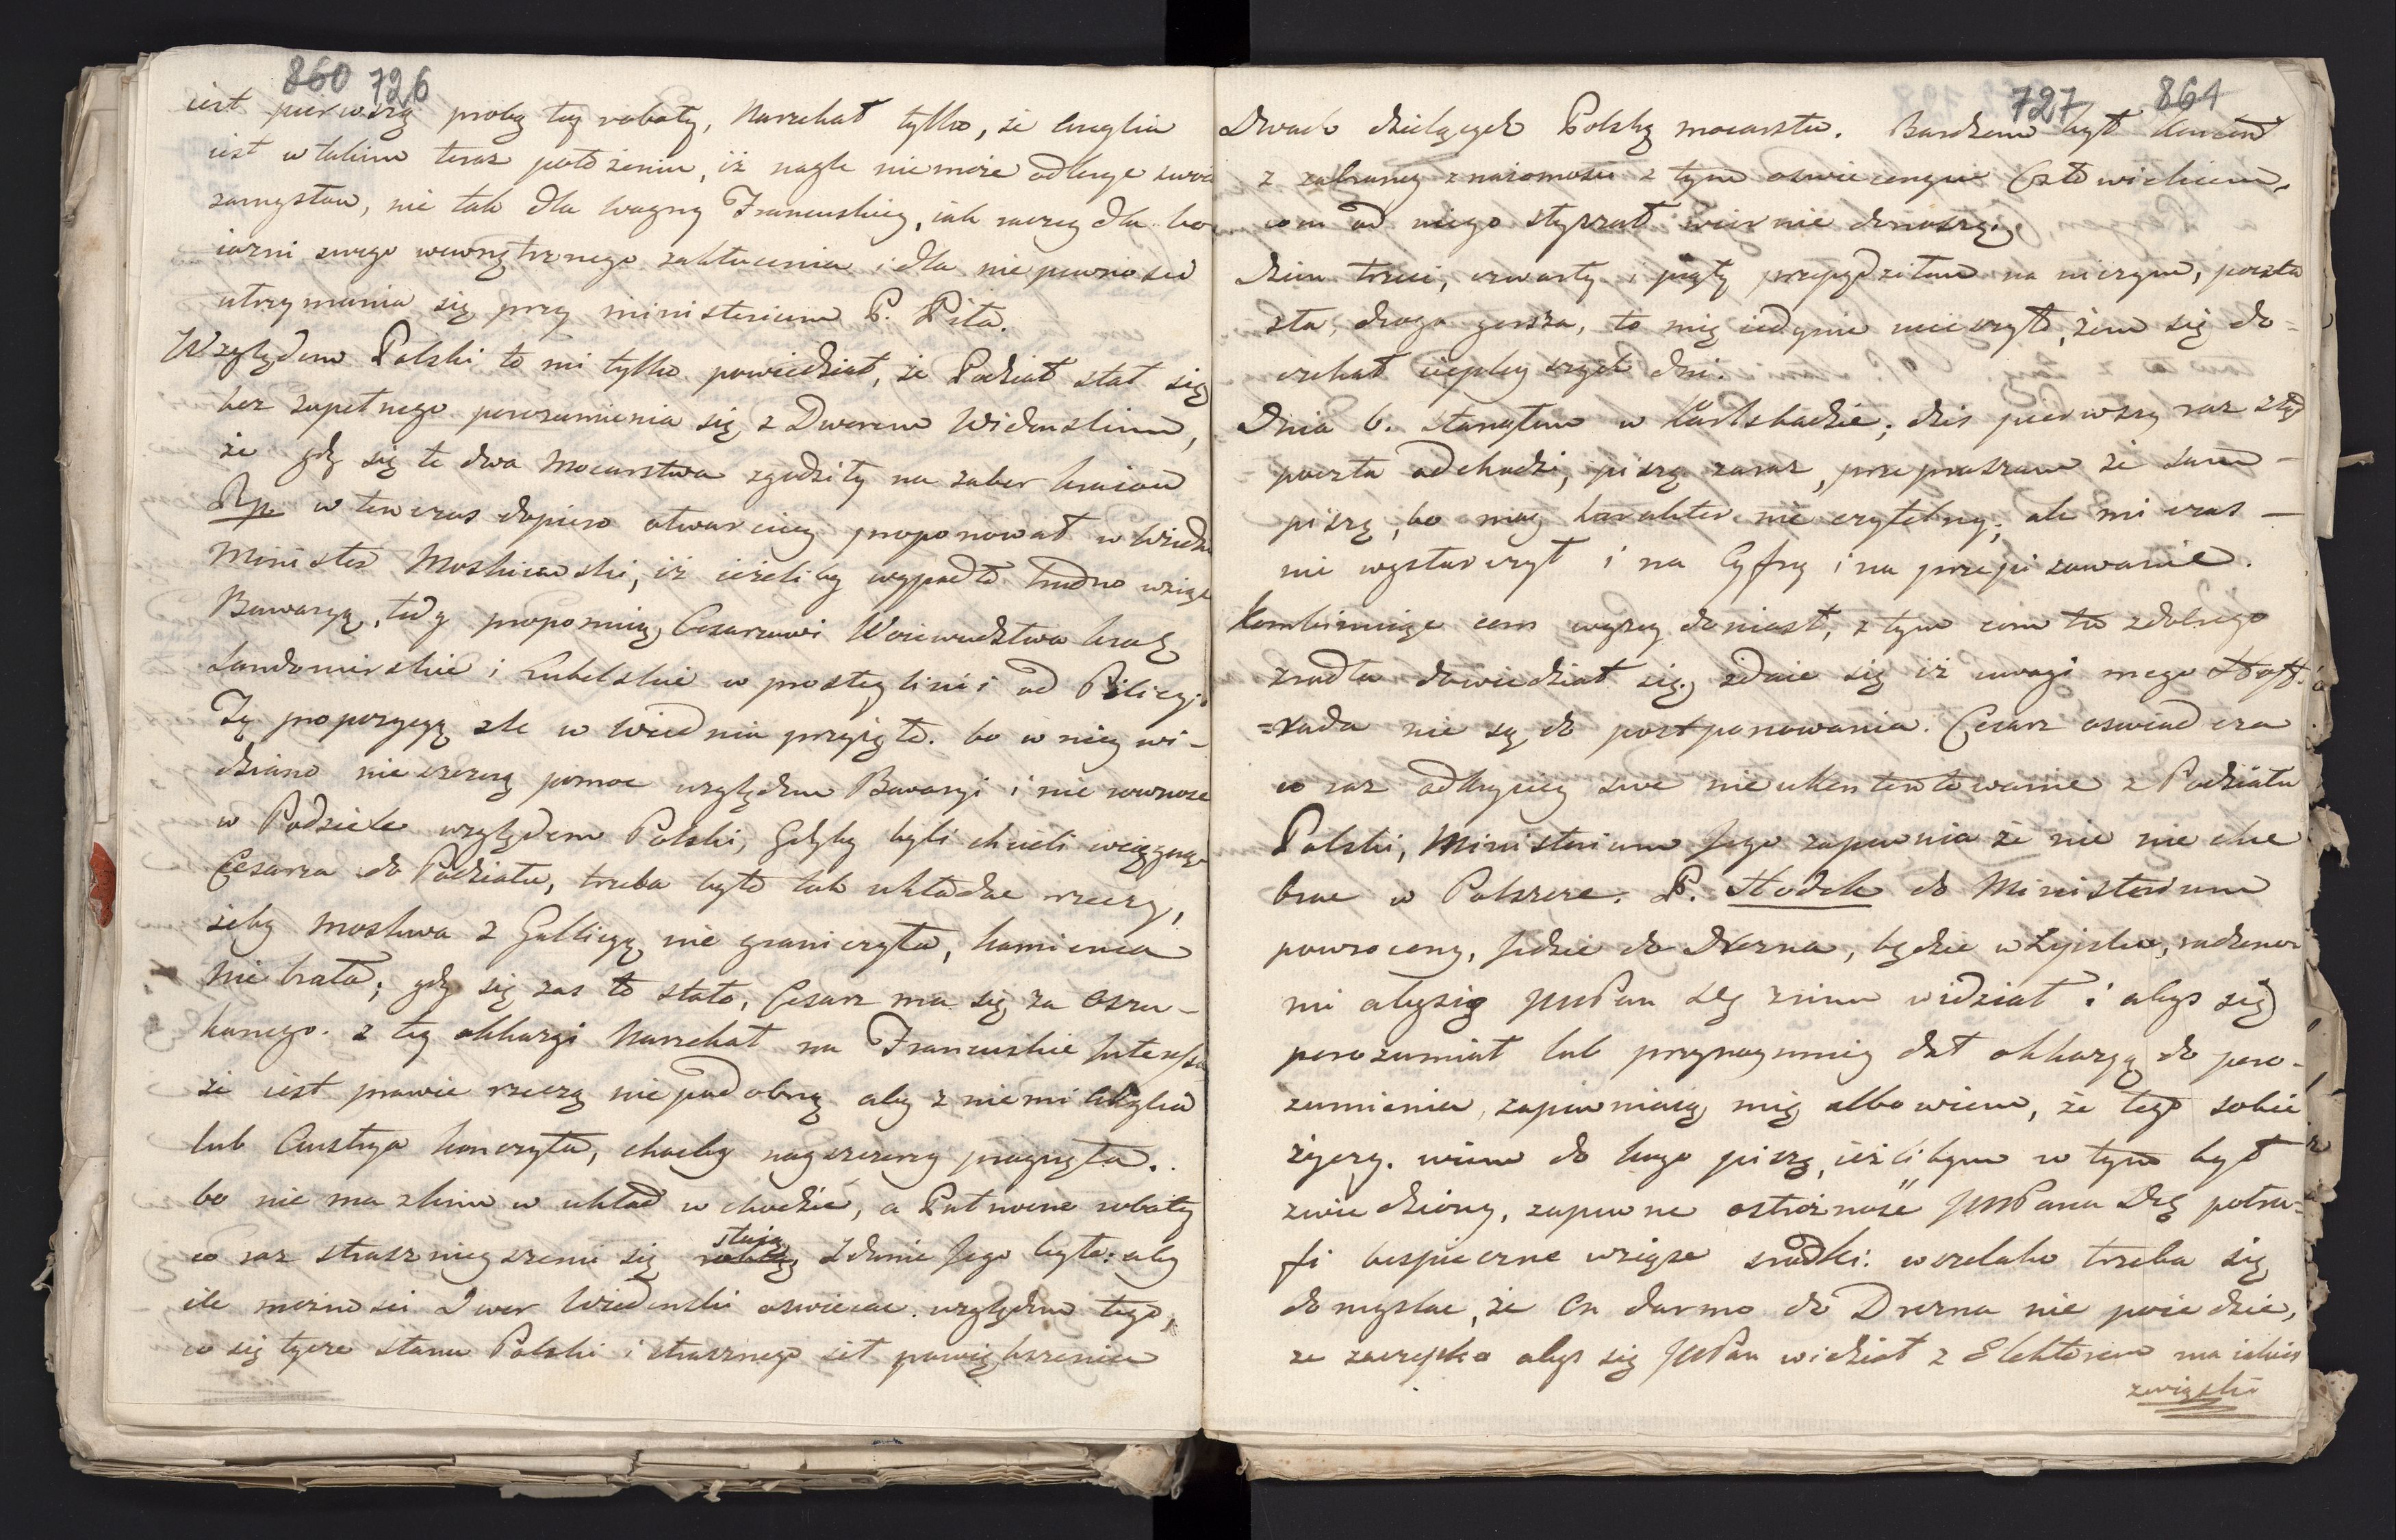 860 726
iest pierwszą probą tey roboty, Narzekał tylko, że Anglia
iest w takim teraz położeniu, iż nagle niemoże odkryc swoie
zamysłow, nie tak dla woyny Francuskiey, iak raczey dla bo
iazni swego wewnętrznego zakłucenia i dla niepewnosci
utrzymania się przy ministerium P. Pita.
Względem Polski to mi tylko powiedział, że Podział stał się
bez zupełnego porozumienia się z Dworem Widenskim,
że gdy się te dwa Mocarstwa zgodziły na zabor kraiow
Rp. w tenczas dopiero otwarciey proponował w Wiedn
Minister Moskiewski, iż ieżeliby wypadło trudno wziąc
Bawaryą, tedy proponuią Cesarzowi Woiewodztwa Krak
Sandomirskie i Lubelskie w prostey linii od Pilicy.
Tę propozycyą źle w Wiedniu przyięto. bo w niey wi-
dziano nieszczerą pomoc względem Bawaryi i nie rownosc
w Podziele względem Polski, Gdyby byli chcieli wciągnąc
Cesarza do Podziału, trzeba było tak układac rzeczy,
żeby Moskwa z Gallicyą nie graniczyła, Kamienca
nie brała; gdy się zas to stało, Cesarz ma się za oszu-
kanego. z tey okkazyi Narzekał na Francuskie Interessa
że iest prawie rzeczą niepodobną aby z niemi Anglia
lub Austrya konczyła, chocby nayszczerzey pragnęła.
bo nie ma z kim w układ wchodzic, a Putnocne roboty
co raz straszniey szemi się robią staią Zdanie Jego było: aby
ile możnosci Dwor Wiedenski oswiecac względem tego,
co się tycze stanu Polski i strasznego sił powiększenia
727 861
Dwoch dzielących Polskę mocarstw. Bardzom był kontent
z zabraney znaiomosci z tym oswieconym Człowiekiem,
com od niego słyszał wiernie donoszę.
Dzien trzeci, czwarty i piąty przepędziłem na niczym, poszta
zła, droga gorsza, to mię iedynie ucieszyło, żem się do-
czekał ciepleyszych dni.
Dnia 6. stanąłem w Karlsbadzie; dzis pierwszy raz ztąd
poczta odchodzi, piszę zaraz, przepraszam że sam -
piszę, bo moy karakter nie czytelny; ale mi czas -
nie wystarczył i na Cyfry i na przepisowanie.
Kombinuiąc com wyzey doniosł, z tym com tu z dobrego
zrodła dowiedział się, zdaie się iż uwagi mego Hoff.
=rada nie są do postponowania. Cesarz oswiadcza
co raz odkryciey swe nieukontentowanie z Podziału
Polski, Ministerium Jego zapewnia że nic nie chce
brac w Polszcze. P. Hodck do Ministerium
powrocony, Jedzie do Drezna, będzie w Lipsku, radzono
mi abysię JWPan Dzg z nim widział i abys się
porozumiał lub przynaymniey dał okkazyą do poro-
zumienia, zapewniaią mię albowiem, że tego sobie
życzy. wiem do kogo piszę, ieżlibym w tym był
zwiedziony, zapewne ostrożnosc JWPana Dzg potra-
fi bespieczne wziąsc srodki: wszelako trzeba się
domyslac, że on darmo do Drezna nie poiedzie,
ze zaczepka abys się JWPan widział z Elektorem ma iakis
związek